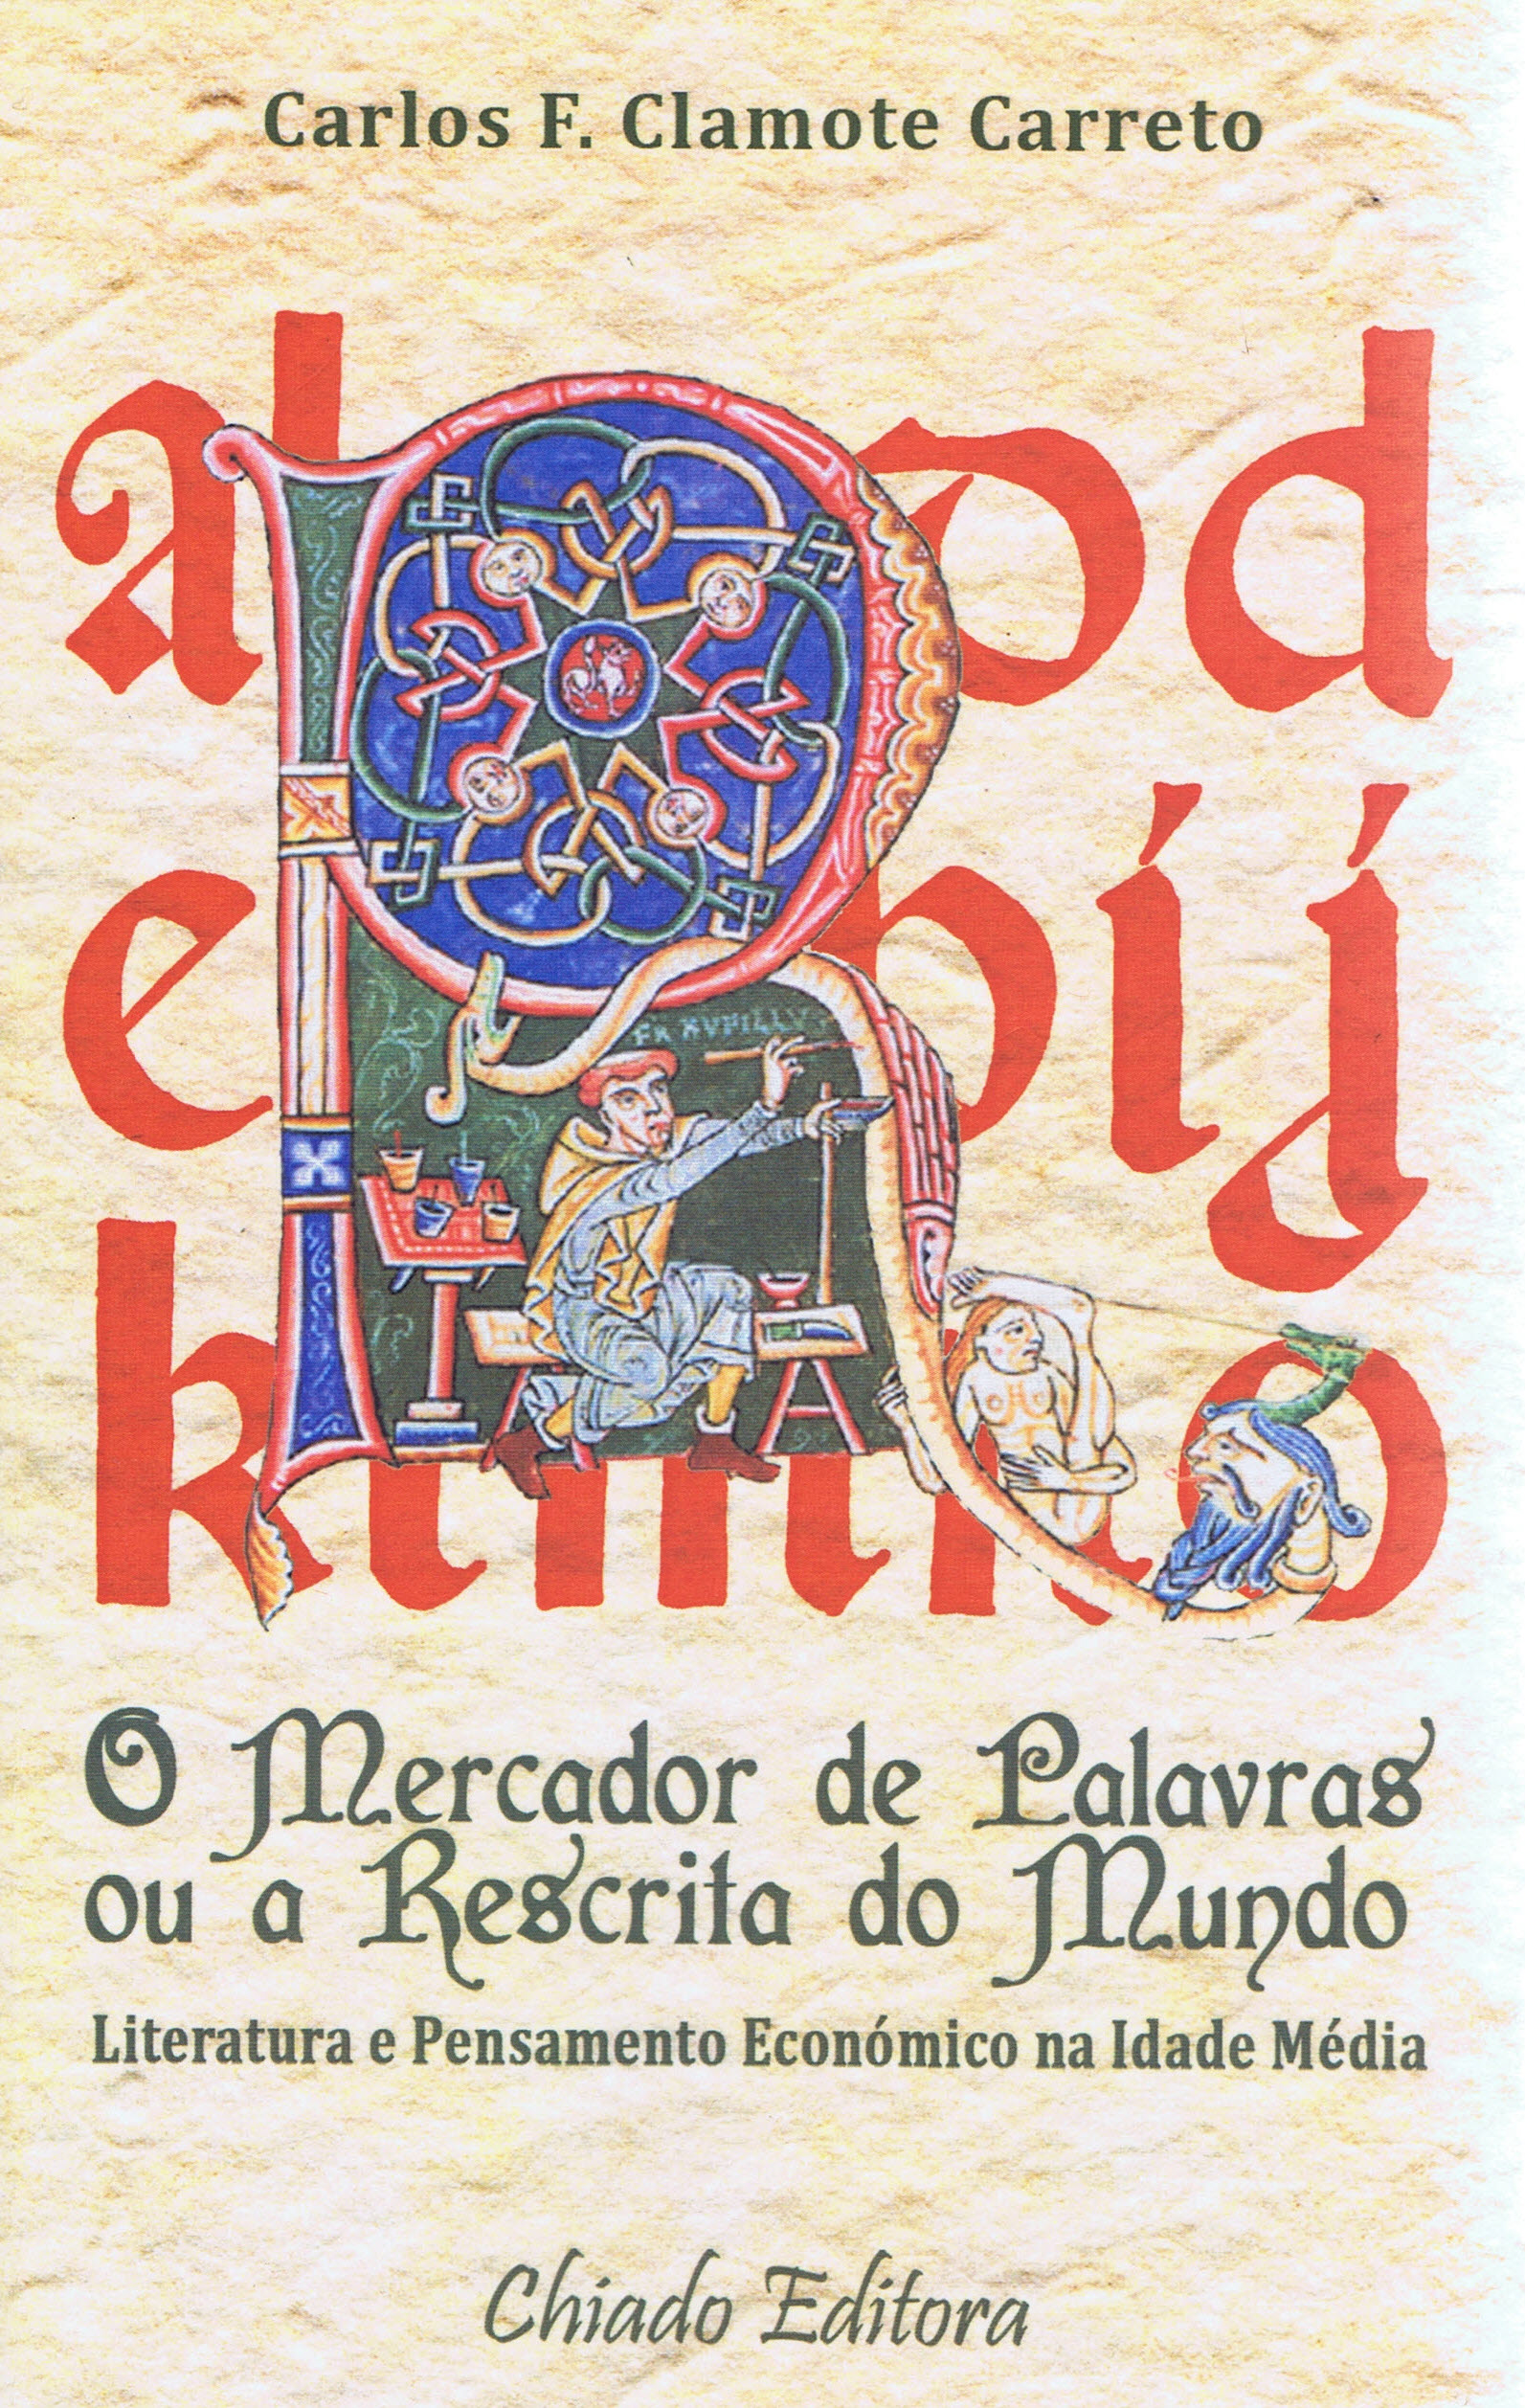 Carlos F. Clamote Carreto
R
FR RUFILLUS
O Mercador de Palavras
ou a Rescrita do Mundo
Literatura e Pensamento Económico na Idade Média
Chiado Editora